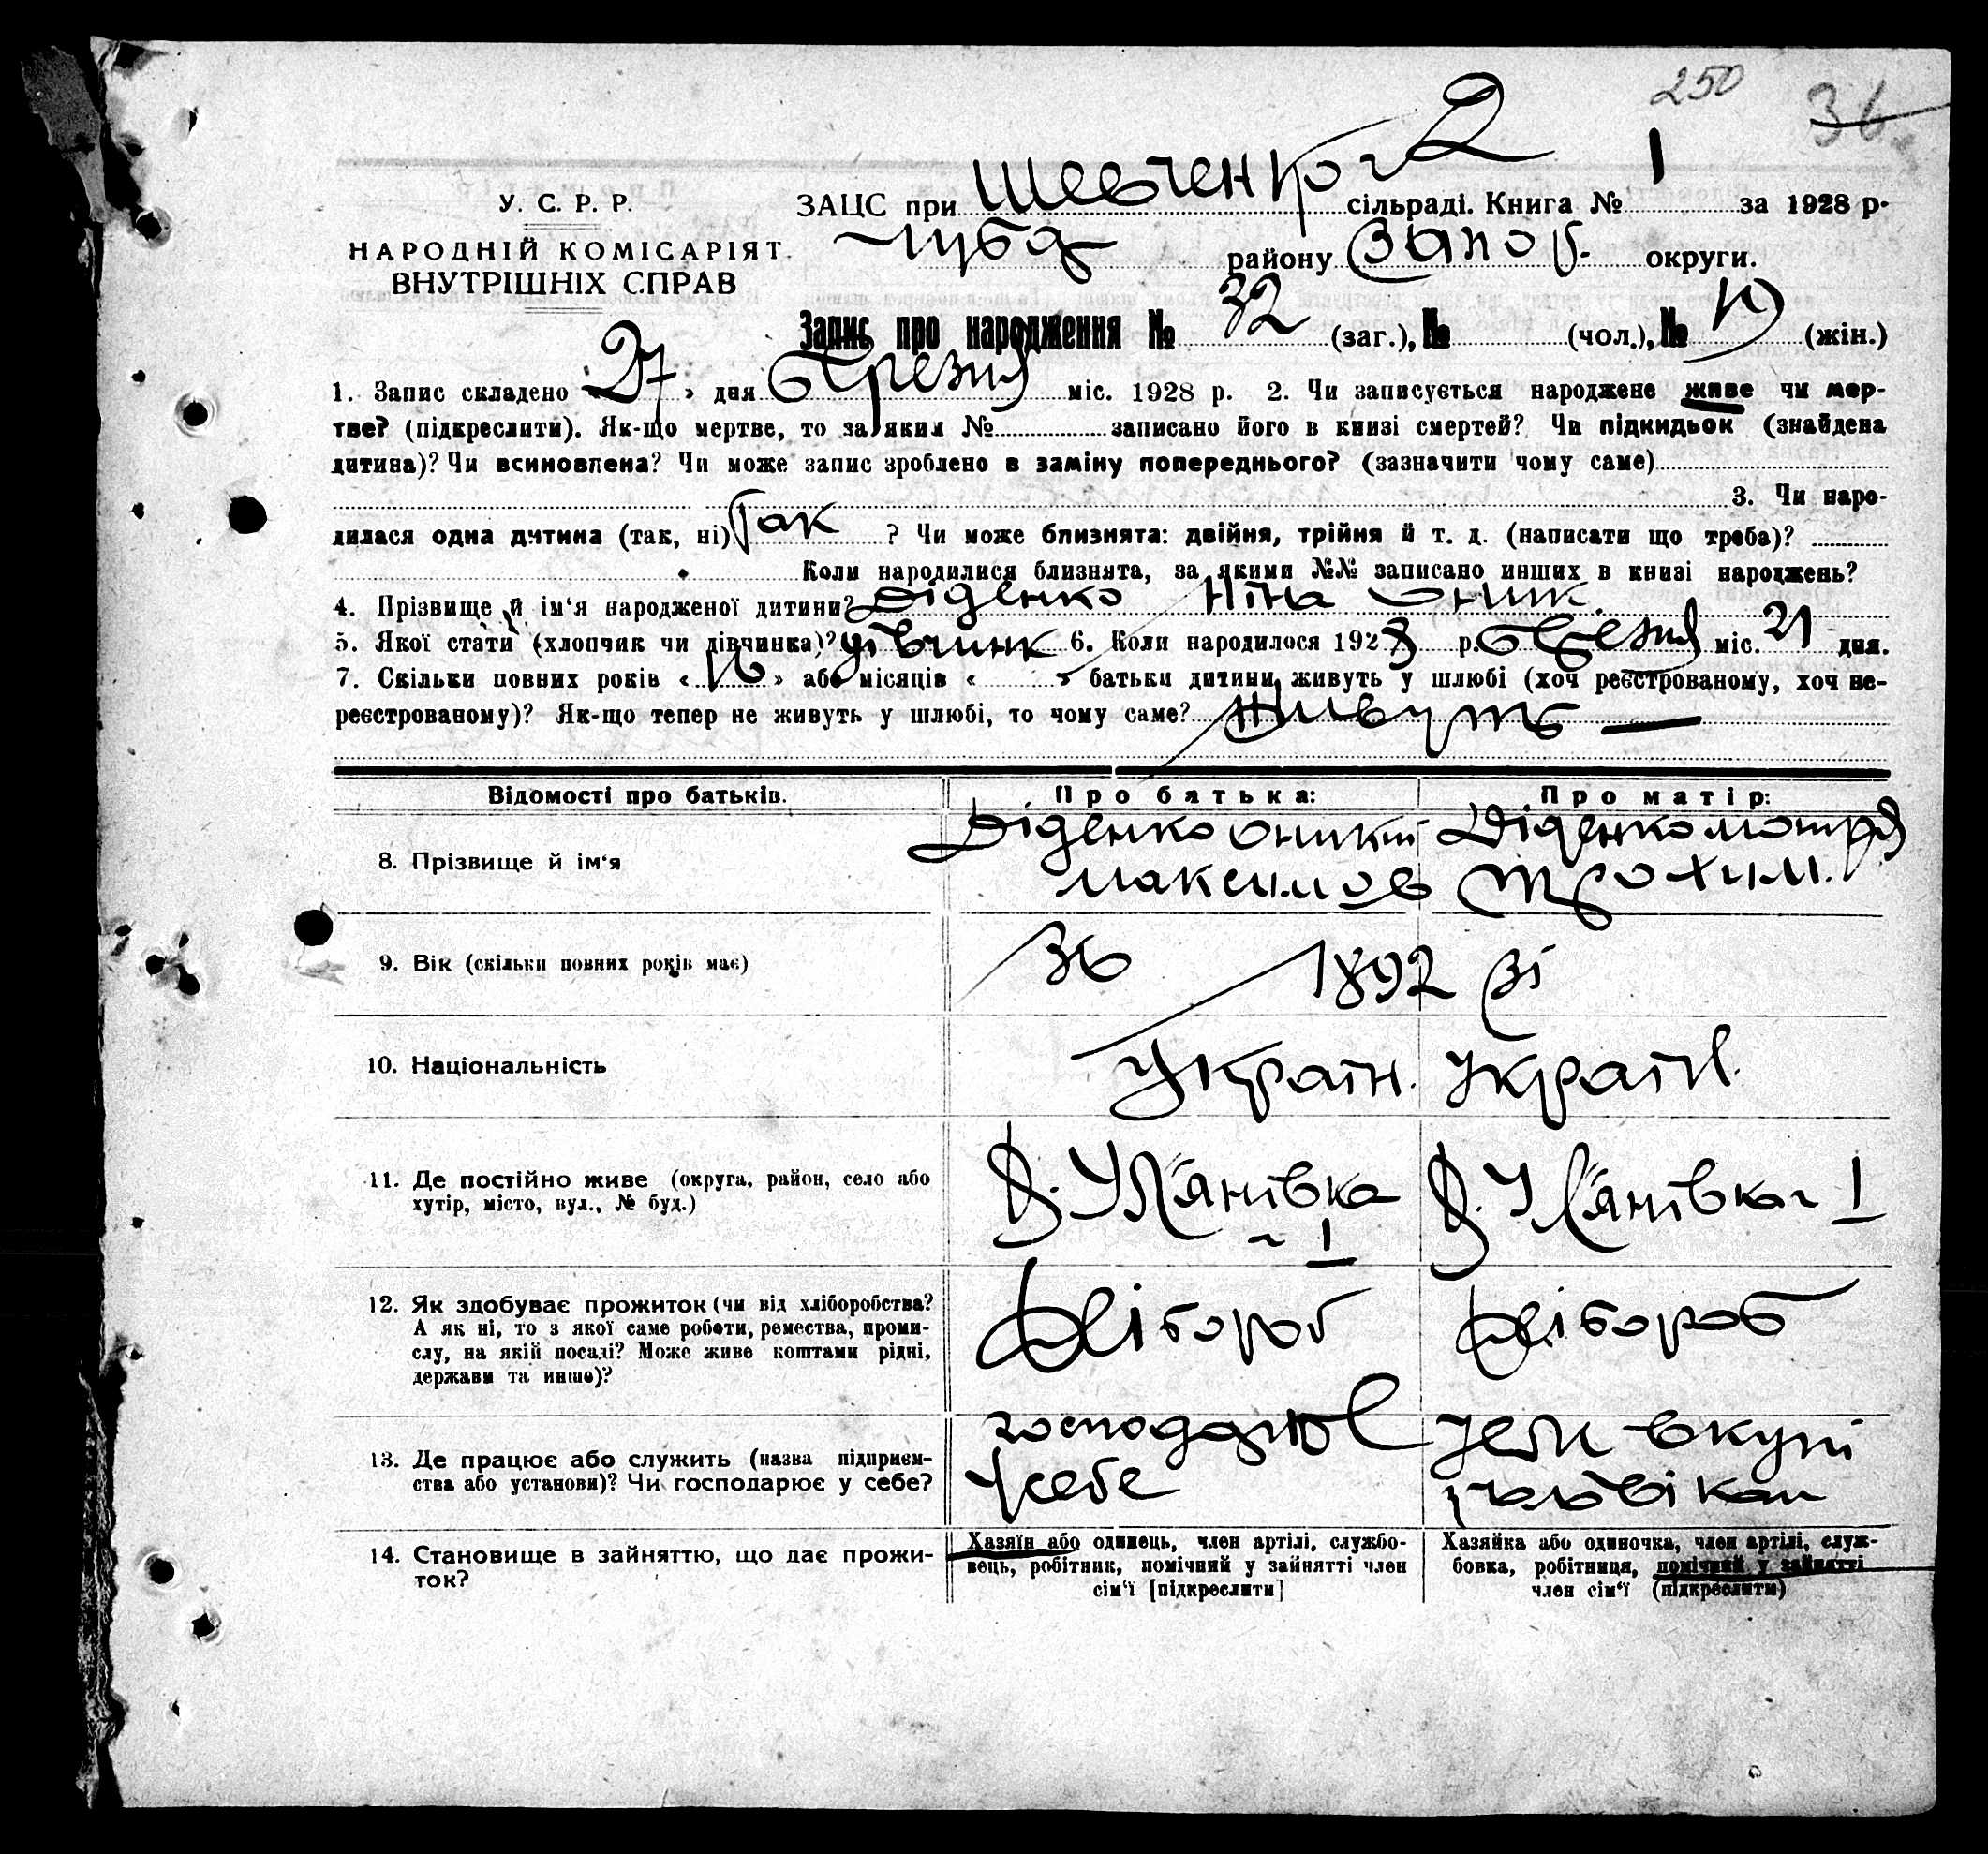 250
36
2
У. С. Р. Р.
НАРОДНІЙ КОМІСАРІЯТ
ВНУТРІШНІХ СПРАВ
ЗАЦС при Шевченков сільраді. Книга № 1 за 1928 р.
району Запоб. округи.
Запис про народження № 32 (заг.), № (чол.), № 19 (жін.)
1. Запис складено «27» дня березня міс. 1928 р. 2. Чи записується народжене живе чи мер-
тве? (підкреслити). Як-що мертве, то за яким № записано його в книзі смертей? Чи підкидьок (знайдена
дитина)? Чи всиновлена? Чи може запис зроблено в заміну попереднього? (зазначити чому саме)
3. Чи наро-
дилася одна дитина (так, ні) Так ? Чи може близнята: двійня, трійня й т. д. (написати що треба)?
Коли народилися близнята, за якими №№ записано инших в книзі народжень?
4. Прізвище й ім‘я народженої дитини? Діденко Ніна Оник.
5. Якої стати (хлопчик чи дівчинка)? дівчинк 6. Коли народилося 1928 р. березня міс. 21 дня.
7. Скільки повних років «16» або місяців « » батьки дитини живуть у шлюбі (хоч реєстрованому, хоч не-
реєстрованому)? Як-що тепер не живуть у шлюбі, то чому саме? Живуть —
Відомості про батьків. Про батька: Про матір:
8. Прізвище й ім‘я Діденко Оникій Діденко Мотря
Максимов Трохим.
9. Вік (скільки повних років має) 36 1892 31
10. Національність Україн. Україн.
11. Де постійно живе (округа, район, село або
хутір, місто, вул., № буд.) В. Улянівка В. Улянівка 1
1
12. Як здобуває прожиток (чи від хліборобства?
А як ні, то з якої саме роботи, ремества, проми-
слу, на якій посаді? Може живе коштами рідні,
держави та инше)?
Хлібороб Хлібороб
13. Де працює або служить (назва підприєм-
ства або установи)? Чи господарює у себе?
господарює
у себе
вкупі
14. Становище в зайняттю, що дає прожи-
ток?
Хазяїн або одинець, член артілі, службо-
вець, робітник, помічний у зайнятті член
сім‘ї [підкреслити]
Хазяйка або одиночка, член артілі, служ-
бовка, робітниця, помічний у зайнятті
член сім‘ї (підкреслити)